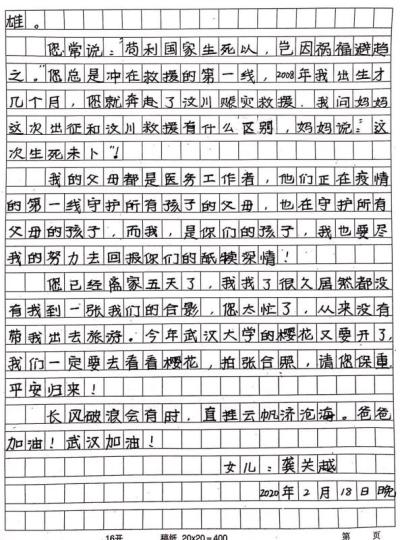 雄。
您常说:“苟利国家生死以,岂因祸福避趋
之。”您总是冲在救援的第一线,2008年我出生才
几个月,您就奔赴了汶川赈灾救援。我问妈妈
这次出征和汶川救援有什么区别,妈妈说:“这
次生死未卜”!
我的父母都是医务工作者,他们正在疫情
的第一线守护所有孩子的父母,也在守护所有
父母的孩子,而我,是你们的孩子,我也要尽
我的努力去回报你们的舐犊深情!
您已经离家五天了,我找了很久居然都没
有找到一张我们的合影,您太忙了,从来没有
带我出去旅游。今年武汉大学的樱花又要开了,
我们一定要去看看樱花,拍张合照,请您保重
平安归来!
长风破浪会有时,直挂云帆济沧海。爸爸
加油!武汉加油!
女儿:龚关越
2020年2月18日晚
16开 稿纸 20×20=400 第 页